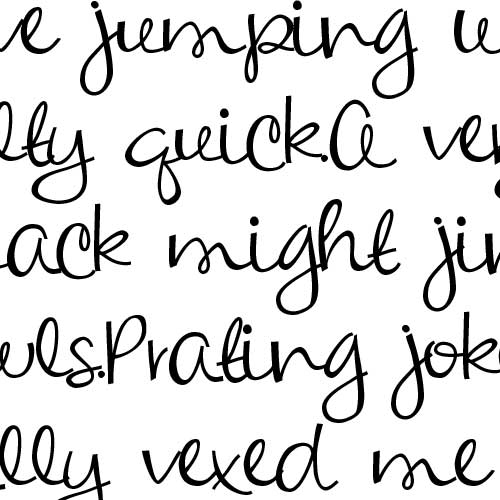 ve jumping w
lty quick.A ver
ack might jin
wls.Prating joke
lly vexed me